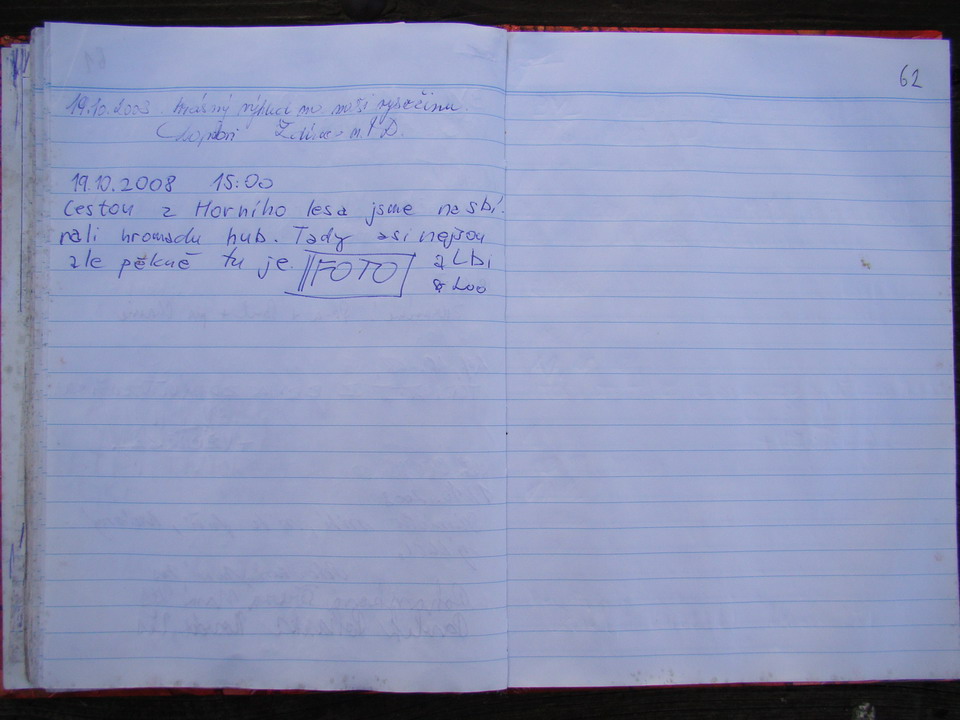 19.10.2008 krásný výhled na naši vysočinu
Žďírec n. D.
19.10.2008 15:00
Cestou z Horního lesa jsme nasbí-
rali hromadu hub. Tady asi nejsou
ale pěkně tu je. FOTO
62